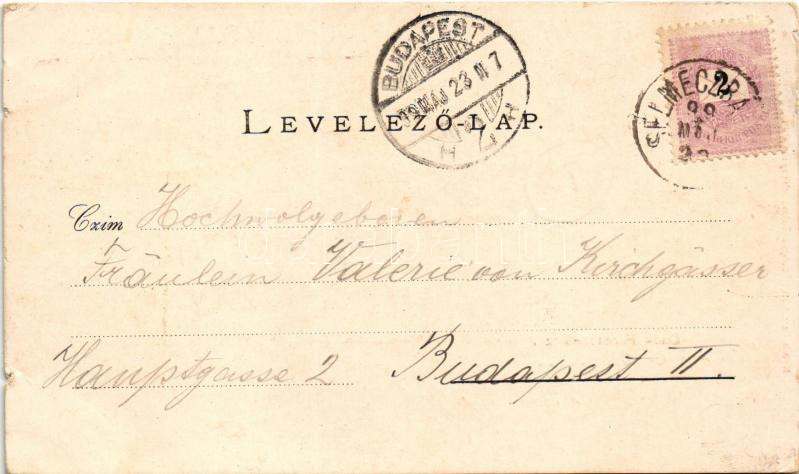 BUDAPEST
99 MÁJ 23 N 7
2
SELMECZBÁ
99
MÁJ
LEVELEZŐ-LAP.
Czim Hochwolgeboren
Fräulein Valerie von Kirchgässer
Hauptgasse 2 Budapest II.
darabanth